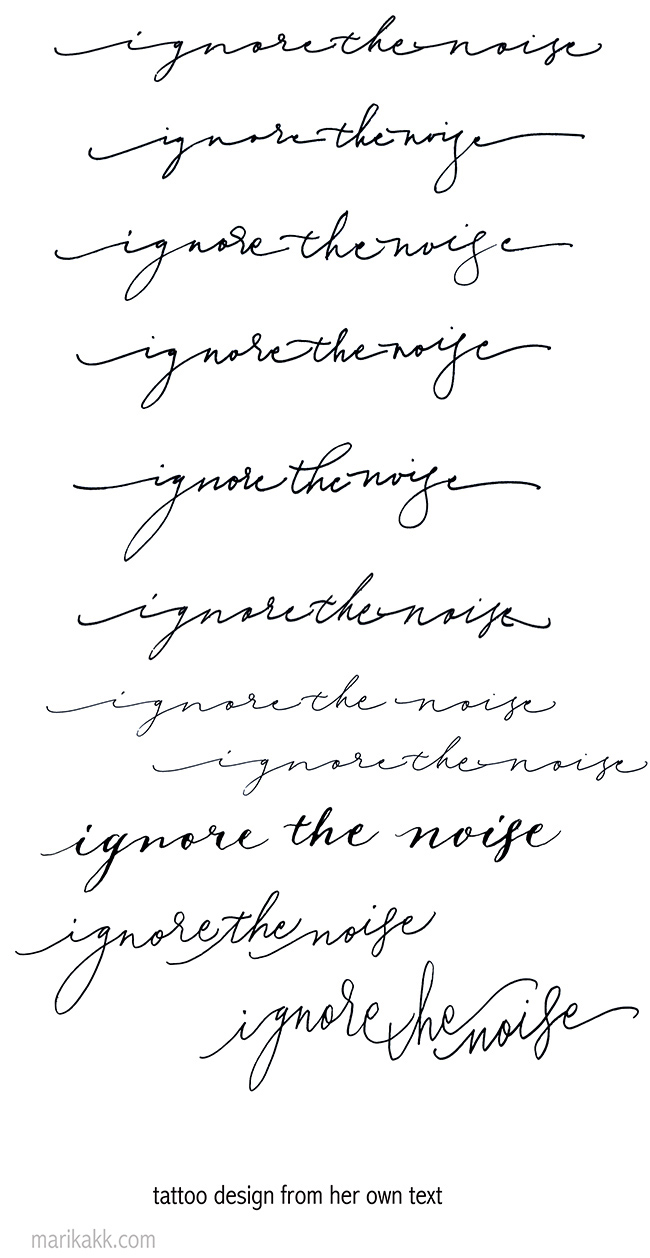 ignore the noise
ignore the noise
ignore the noise
ignore the noise
ignore the noise
ignore the noise
ignore the noise
ignore the noise
ignore the noise
ignore the noise
ignore the noise
tattoo design from her own text
marikakk.com